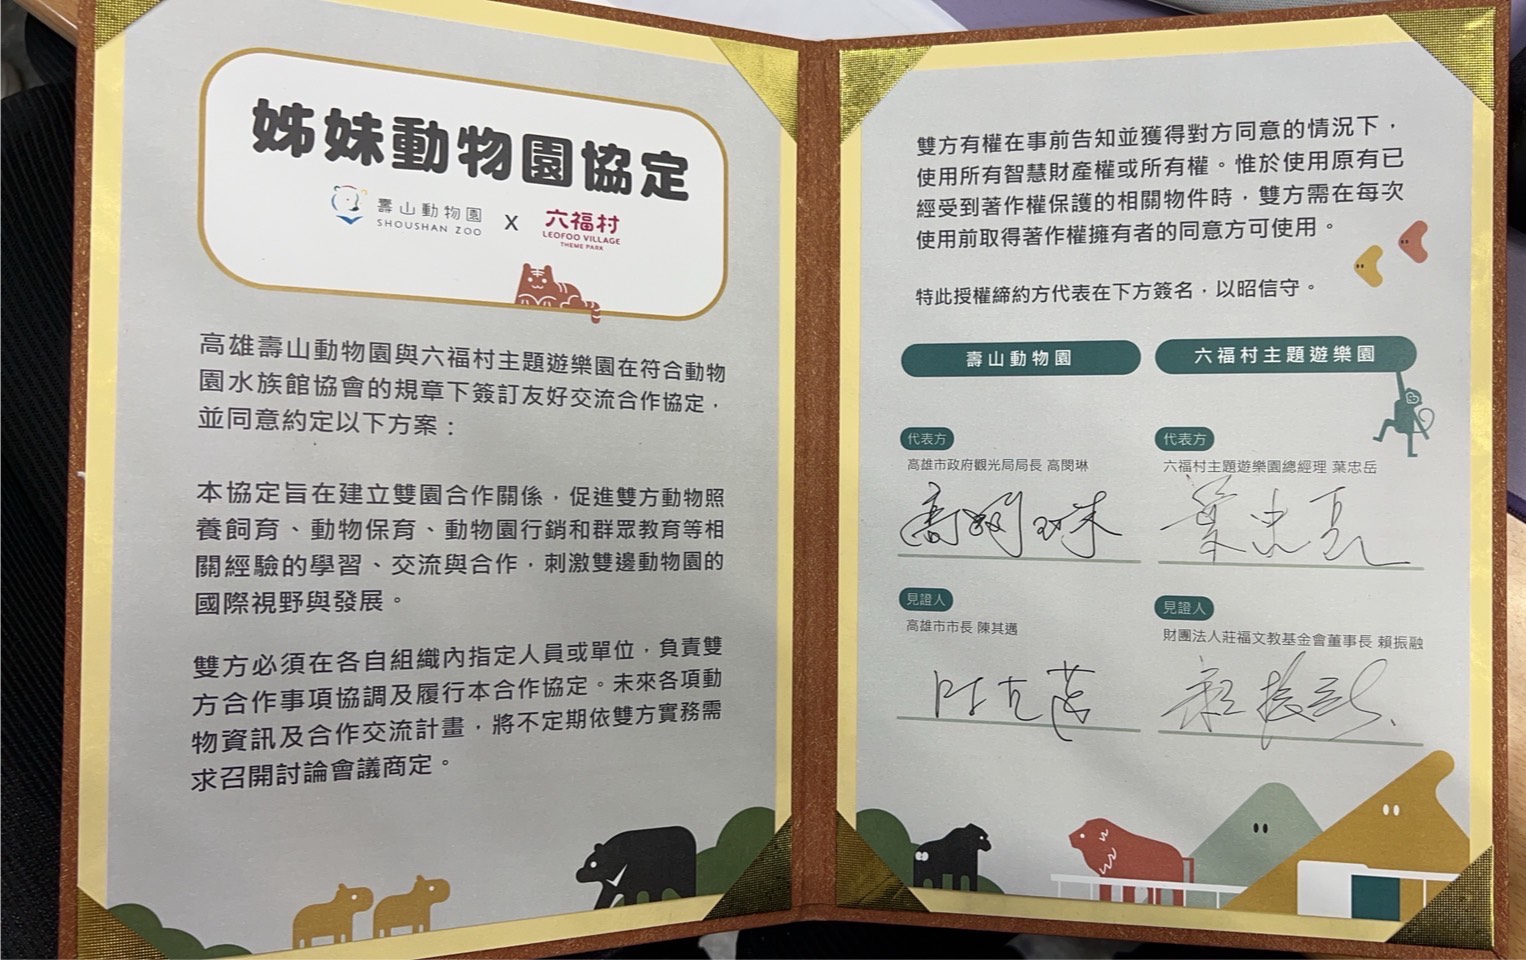 姊妹動物園協定
壽山動物園
SHOUSHAN ZOO
X
六福村
LEOFOO VILLAGE
THEME PARK
高雄壽山動物園與六福村主題遊樂園在符合動物
園水族館協會的規章下簽訂友好交流合作協定，
並同意約定以下方案：
本協定旨在建立雙園合作關係，促進雙方動物照
養飼育、動物保育、動物園行銷和群眾教育等相
關經驗的學習、交流與合作，刺激雙邊動物園的
國際視野與發展。
雙方必須在各自組織內指定人員或單位，負責雙
方合作事項協調及履行本合作協定。未來各項動
物資訊及合作交流計畫，將不定期依雙方實務需
求召開討論會議商定。
雙方有權在事前告知並獲得對方同意的情況下，
使用所有智慧財產權或所有權。惟於使用原有已
經受到著作權保護的相關物件時，雙方需在每次
使用前取得著作權擁有者的同意方可使用。
特此授權締約方代表在下方簽名，以昭信守。
壽山動物園
代表方
高雄市政府觀光局局長 高閔琳
高閔琳
見證人
高雄市市長 陳其邁
陳其邁
六福村主題遊樂園
代表方
六福村主題遊樂園總經理 葉忠岳
葉忠岳
見證人
財團法人莊福文教基金會董事長 賴振融
賴振融